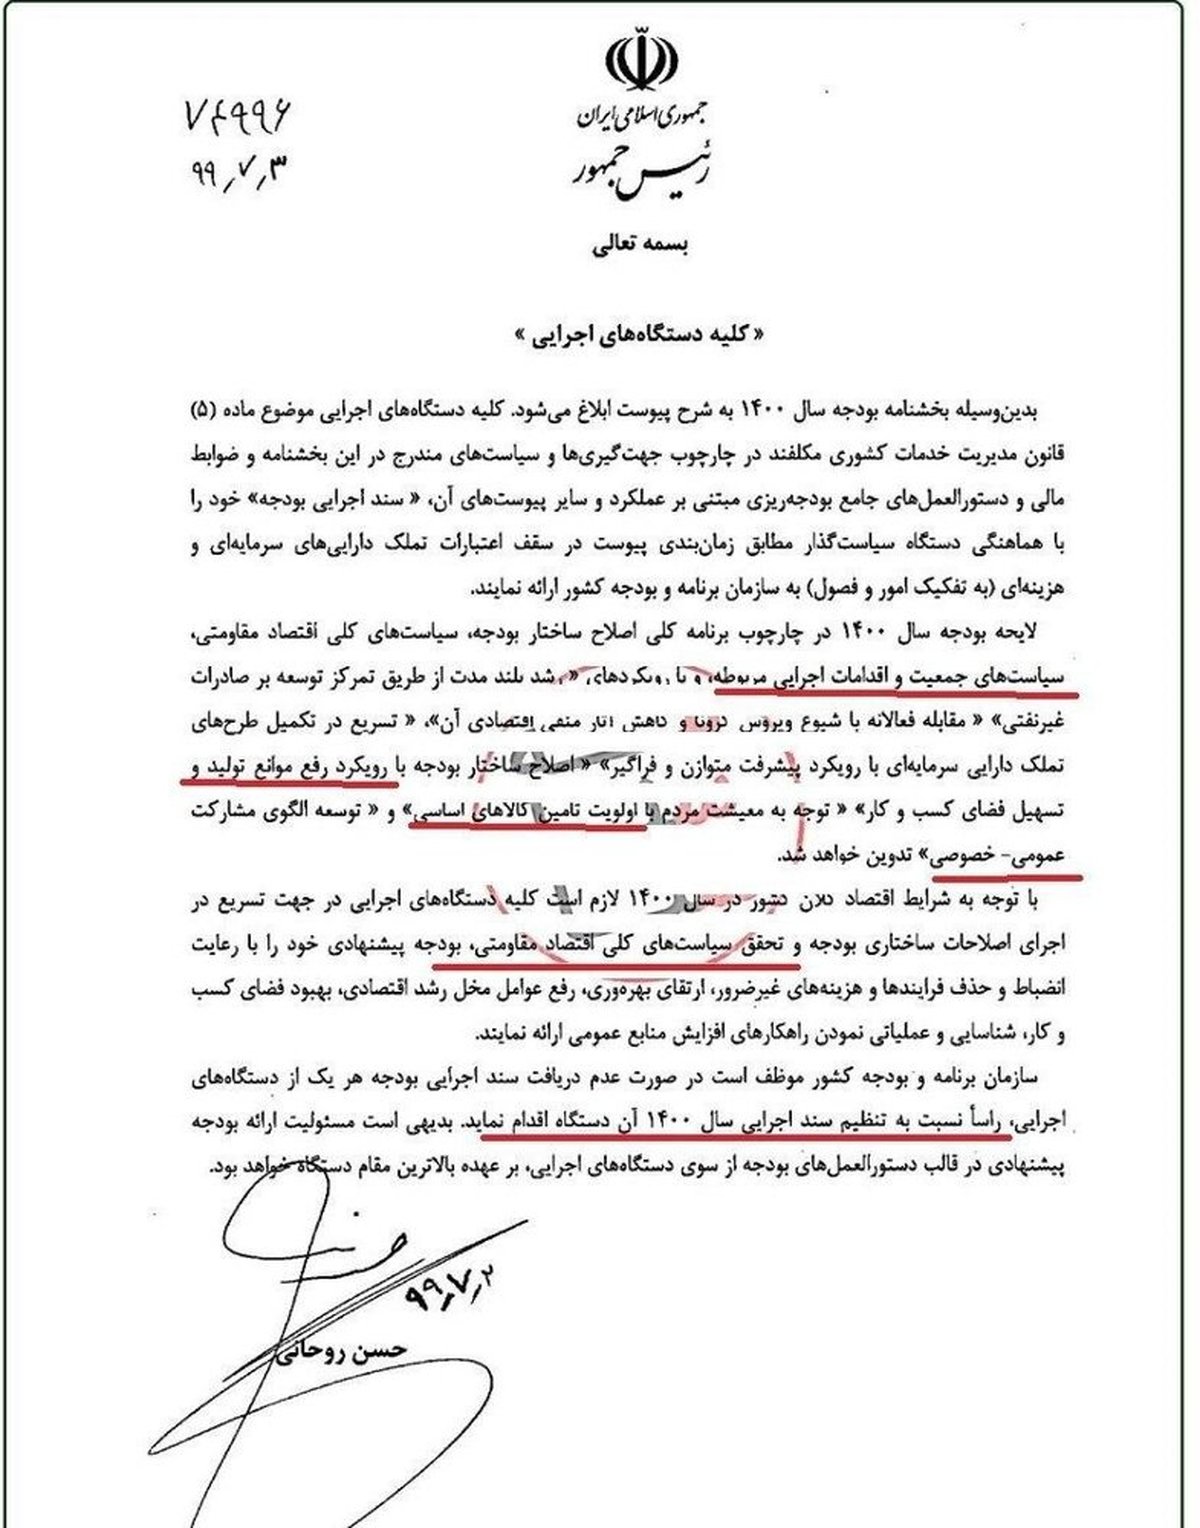 جمهوری اسلامی ایران
رئیس جمهور
۷۴۹۹۶
۹۹٫۷٫۳
بسمه تعالی
« کلیه دستگاه‌های اجرایی »
بدین‌وسیله بخشنامه بودجه سال ۱۴۰۰ به شرح پیوست ابلاغ می‌شود. کلیه دستگاه‌های اجرایی موضوع ماده (۵)
قانون مدیریت خدمات کشوری مکلفند در چارچوب جهت‌گیری‌ها و سیاست‌های مندرج در این بخشنامه و ضوابط
مالی و دستورالعمل‌های جامع بودجه‌ریزی مبتنی بر عملکرد و سایر پیوست‌های آن، « سند اجرایی بودجه» خود را
با هماهنگی دستگاه سیاست‌گذار مطابق زمان‌بندی پیوست در سقف اعتبارات تملک دارایی‌های سرمایه‌ای و
هزینه‌ای (به تفکیک امور و فصول) به سازمان برنامه و بودجه کشور ارائه نمایند.
لایحه بودجه سال ۱۴۰۰ در چارچوب برنامه کلی اصلاح ساختار بودجه، سیاست‌های کلی اقتصاد مقاومتی،
سیاست‌های جمعیت و اقدامات اجرایی مربوطه، و با رویکردهای « رشد بلند مدت از طریق تمرکز توسعه بر صادرات
غیرنفتی» « مقابله فعالانه با شیوع ویروس کرونا و کاهش آثار منفی اقتصادی آن»، « تسریع در تکمیل طرح‌های
تملک دارایی سرمایه‌ای با رویکرد پیشرفت متوازن و فراگیر» « اصلاح ساختار بودجه با رویکرد رفع موانع تولید و
تسهیل فضای کسب و کار» « توجه به معیشت مردم با اولویت تامین کالاهای اساسی» و « توسعه الگوی مشارکت
عمومی- خصوصی» تدوین خواهد شد.
با توجه به شرایط اقتصاد کلان کشور در سال ۱۴۰۰ لازم است کلیه دستگاه‌های اجرایی در جهت تسریع در
اجرای اصلاحات ساختاری بودجه و تحقق سیاست‌های کلی اقتصاد مقاومتی، بودجه پیشنهادی خود را با رعایت
انضباط و حذف فرایندها و هزینه‌های غیرضرور، ارتقای بهره‌وری، رفع عوامل مخل رشد اقتصادی، بهبود فضای کسب
و کار، شناسایی و عملیاتی نمودن راهکارهای افزایش منابع عمومی ارائه نمایند.
سازمان برنامه و بودجه کشور موظف است در صورت عدم دریافت سند اجرایی بودجه هر یک از دستگاه‌های
اجرایی، راساً نسبت به تنظیم سند اجرایی سال ۱۴۰۰ آن دستگاه اقدام نماید. بدیهی است مسئولیت ارائه بودجه
پیشنهادی در قالب دستورالعمل‌های بودجه از سوی دستگاه‌های اجرایی، بر عهده بالاترین مقام دستگاه خواهد بود.
۹۹٫۷٫۲
حسن روحانی